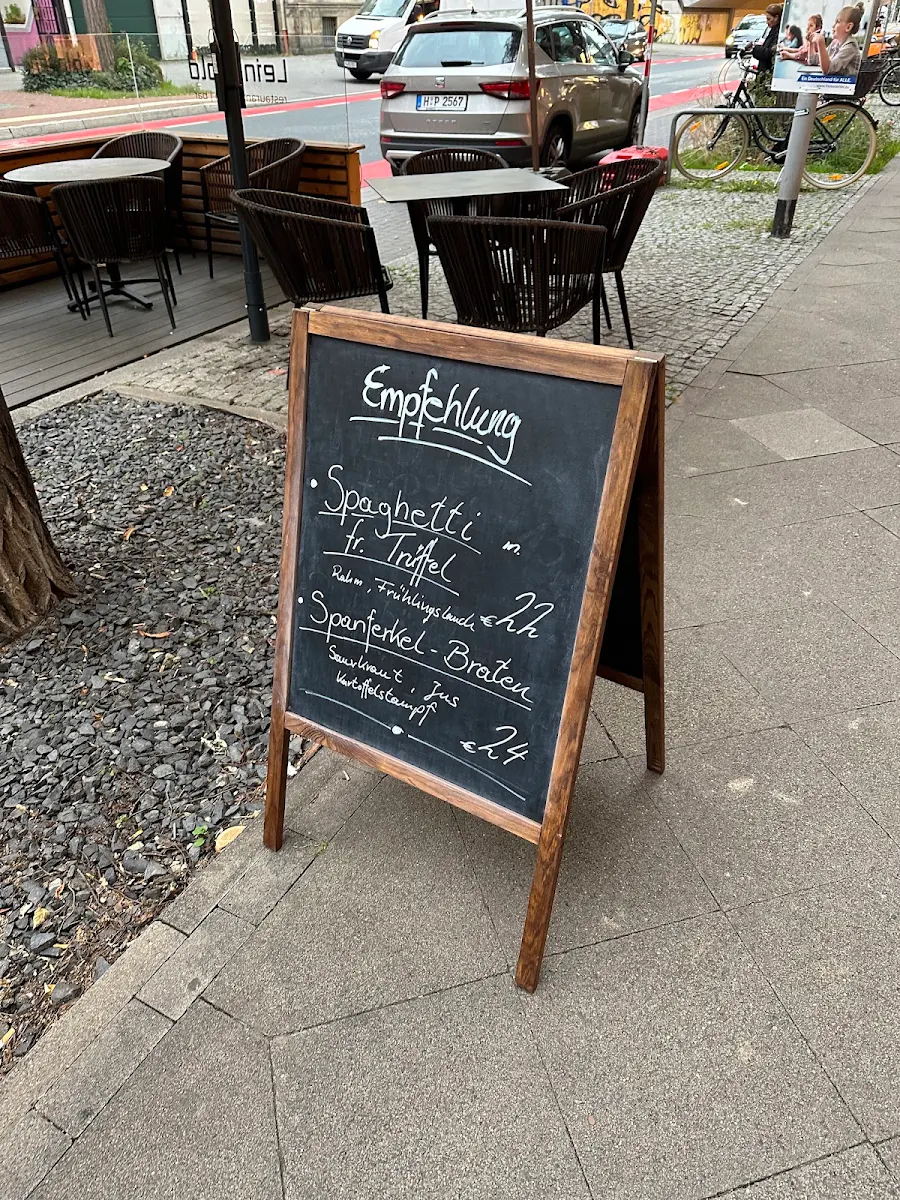 Leingold
restaurant
bar
H P 2567
Ein Deutschland für ALLE.
Empfehlung
• Spaghetti m.
fr. Trüffel
Rahm, Frühlingslauch €22
• Spanferkel-Braten
Sauerkraut, Jus
Kartoffelstampf
€24